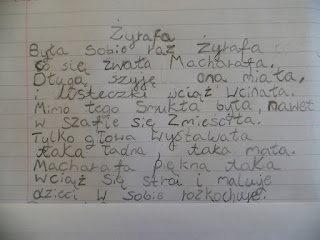 Żyrafa
Była sobie raz żyrafa
co się zwała Macharafa.
Długą szyję ona miała,
i listeczki wciąż wcinała.
Mimo tego smukła była, nawet
w szafie się zmieściła.
Tylko głowa wystawała
taka ładna, taka mała.
Macharafa piękna taka
wciąż się stroi i maluje
dzieci w sobie rozkochuje.